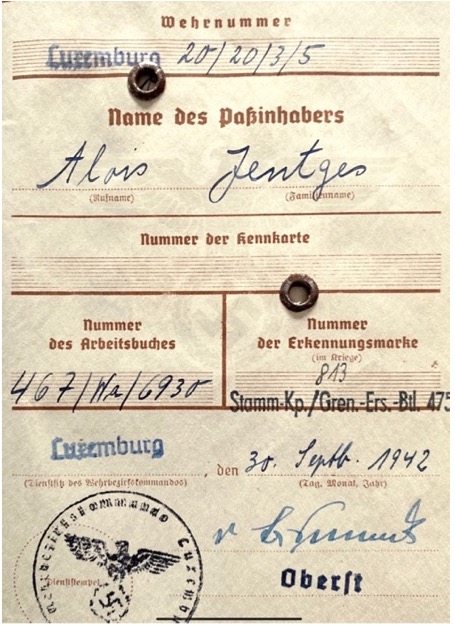 Wehrnummer
Luxemburg 20/20/3/5
Name des Paßinhabers
Alois Jentges
(Rufname) (Familienname)
Nummer der Kennkarte
Nummer des Arbeitsbuches
467/Wa/6930
Nummer der Erkennungsmarke
(im Kriege)
813
Stamm-Kp./Gren.-Ers.-Btl. 475
Luxemburg, den 30. Septb. 1942
(Dienstsitz des Wehrbezirkskommandos) (Tag, Monat, Jahr)
Wehrbezirkskommando Luxemb
Dienststempel
Oberst